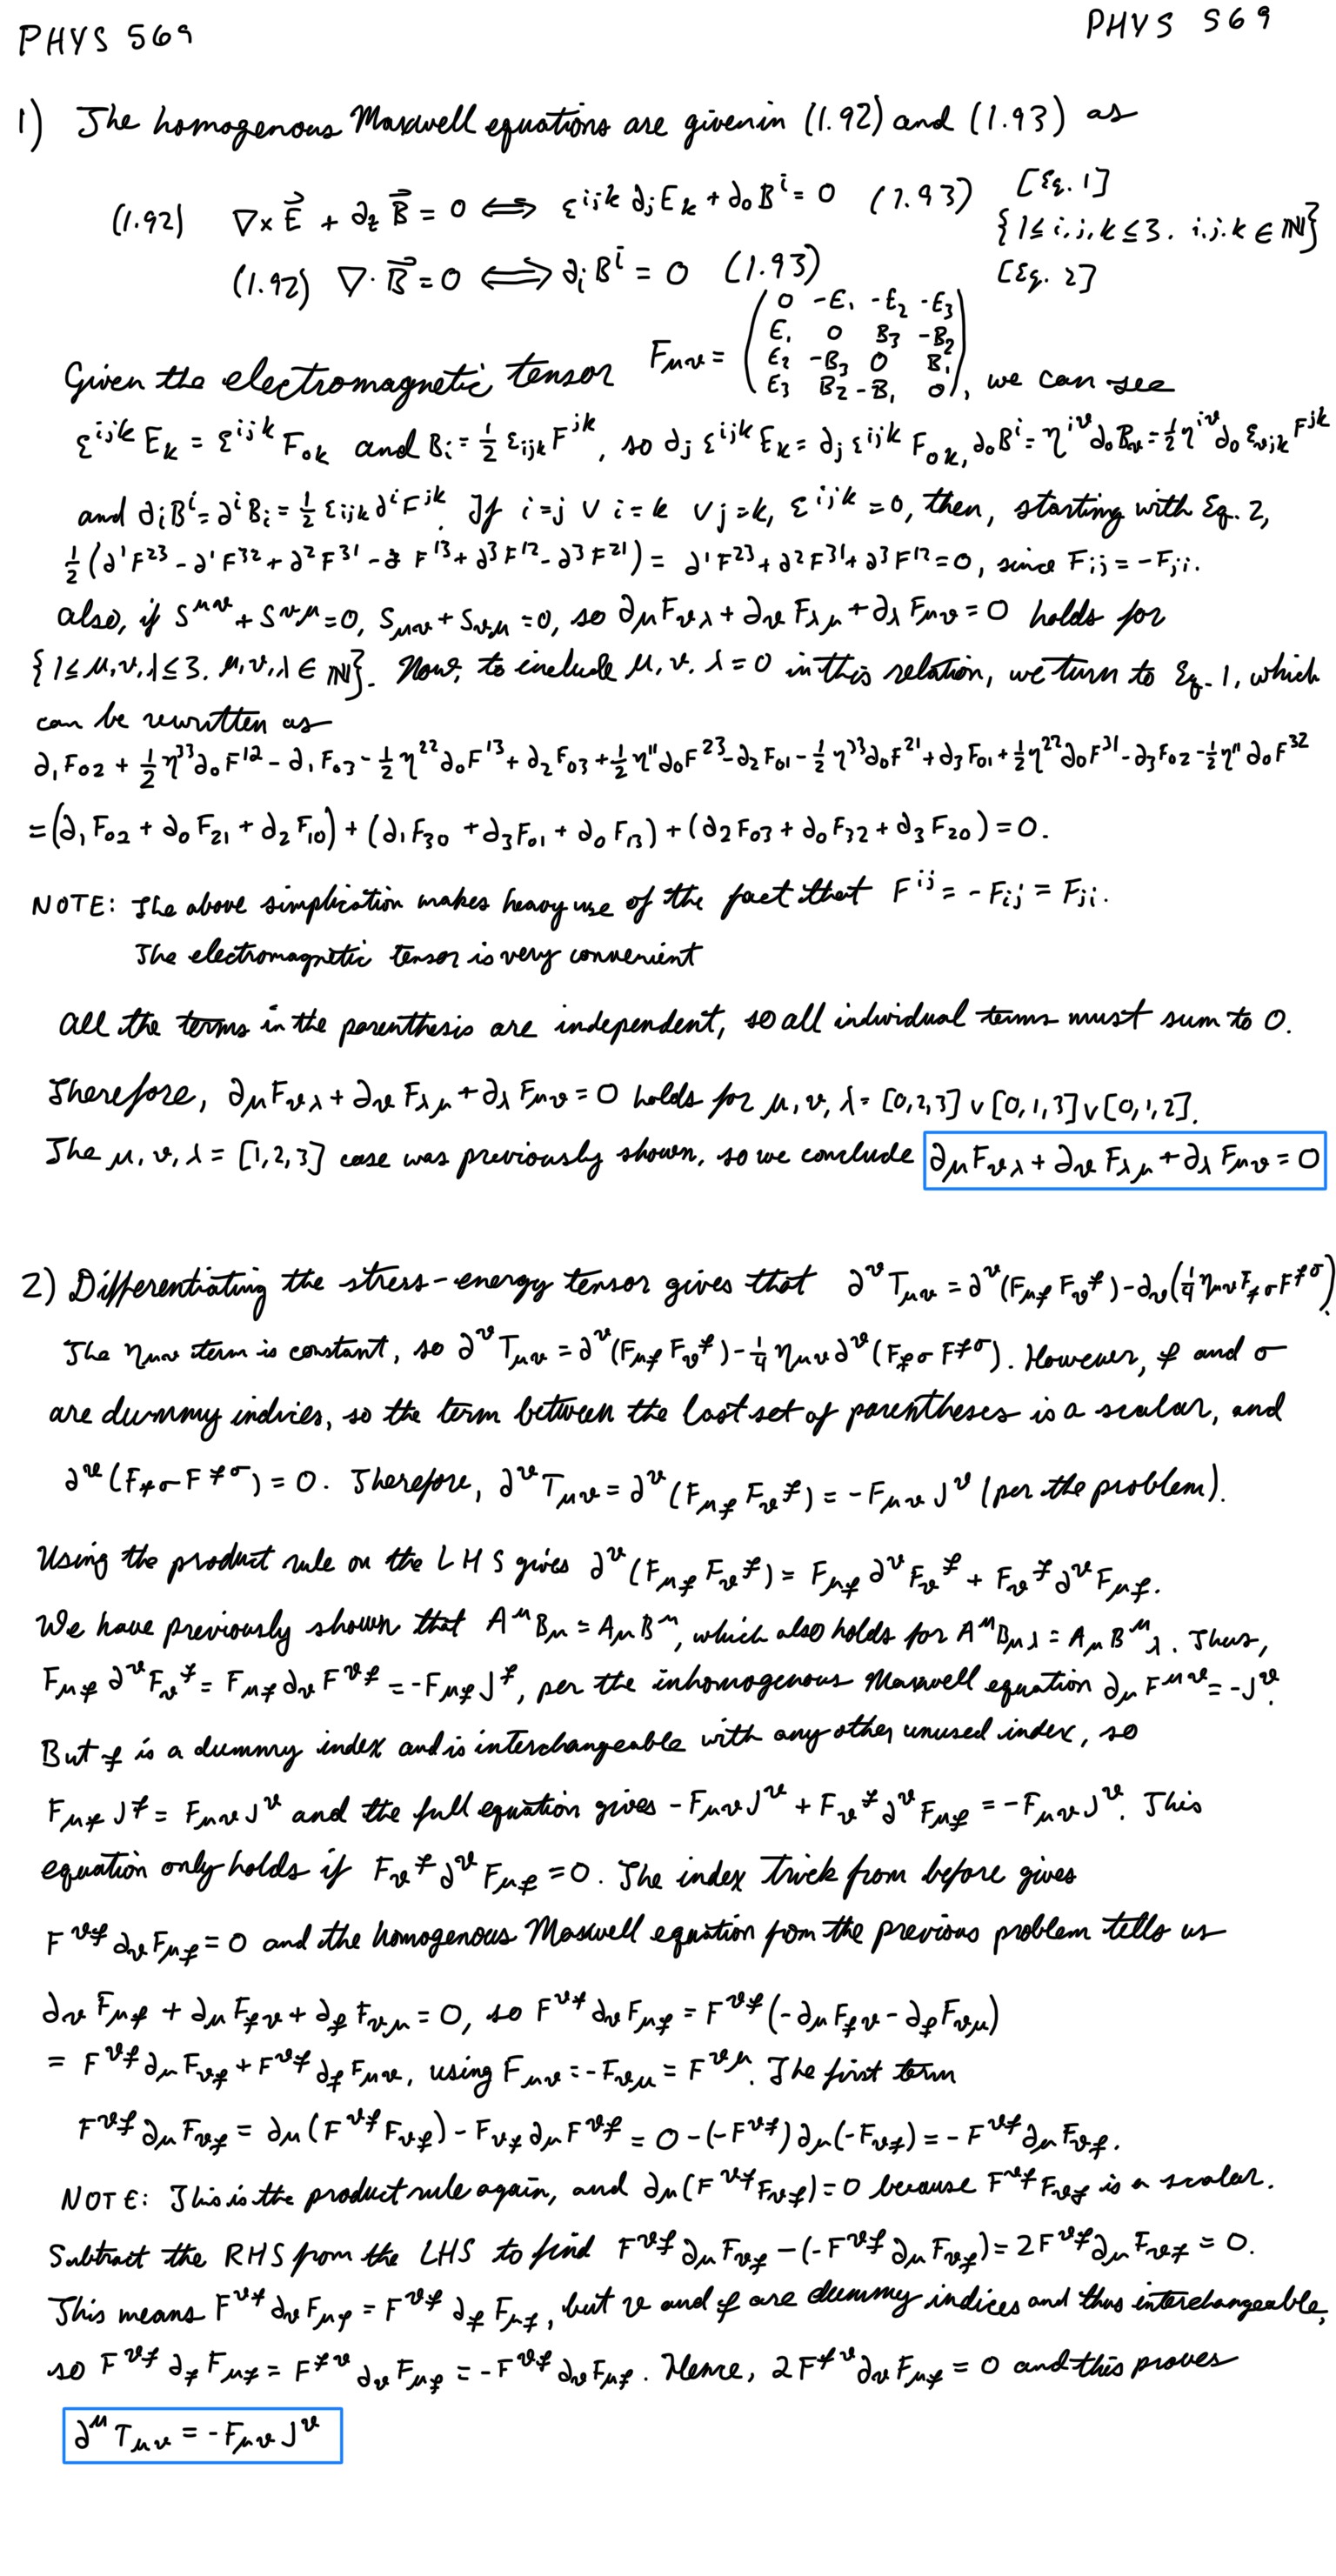 PHYS 569
PHYS 569
1) The homogenous Maxwell equations are given in (1.92) and (1.93) as
(1.92) ∇×E⃗ + ∂ₜB⃗ = 0 ⟺ ε^{ijk} ∂_j E_k + ∂_0 B^i = 0 (1.93) [Eq. 1]
{1≤i,j,k≤3. i,j,k ∈ ℕ}
(1.92) ∇·B⃗ = 0 ⟺ ∂_i B^i = 0 (1.93) [Eq. 2]
Given the electromagnetic tensor F_{μν} = ( 0 -E₁ -E₂ -E₃
E₁ 0 B₃ -B₂
E₂ -B₃ 0 B₁
E₃ B₂ -B₁ 0 ), we can see
ε^{ijk} E_k = ε^{ijk} F_{0k} and B_i = ½ ε_{ijk} F^{jk}, so ∂_j ε^{ijk} E_k = ∂_j ε^{ijk} F_{0k}, ∂_0 B^i = η^{iν} ∂_0 B_ν = ½ η^{iν} ∂_0 ε_{νjk} F^{jk}
and ∂_i B^i = ∂^i B_i = ½ ε_{ijk} ∂^i F^{jk}. If i=j ∨ i=k ∨ j=k, ε^{ijk} = 0, then, starting with Eq. 2,
½(∂^1 F^{23} - ∂^1 F^{32} + ∂^2 F^{31} - F^{13} + ∂^3 F^{12} - ∂^3 F^{21}) = ∂^1 F^{23} + ∂^2 F^{31} + ∂^3 F^{12} = 0, since F_{ij} = -F_{ji}.
Also, if S^{μν} + S^{νμ} = 0, S_{μν} + S_{νμ} = 0, so ∂_μ F_{νλ} + ∂_ν F_{λμ} + ∂_λ F_{μν} = 0 holds for
{1≤μ,ν,λ≤3. μ,ν,λ ∈ ℕ}. Now, to include μ, ν, λ = 0 in this relation, we turn to Eq. 1, which
can be rewritten as
∂_1 F_{02} + ½ η^{33} ∂_0 F^{12} - ∂_1 F_{03} - ½ η^{22} ∂_0 F^{13} + ∂_2 F_{03} + ½ η^{11} ∂_0 F^{23} - ∂_2 F_{01} - ½ η^{33} ∂_0 F^{21} + ∂_3 F_{01} + ½ η^{22} ∂_0 F^{31} - ∂_3 F_{02} - ½ η^{11} ∂_0 F^{32}
= (∂_1 F_{02} + ∂_0 F_{21} + ∂_2 F_{10}) + (∂_1 F_{30} + ∂_3 F_{01} + ∂_0 F_{13}) + (∂_2 F_{03} + ∂_0 F_{32} + ∂_3 F_{20}) = 0.
NOTE: The above simplication makes heavy use of the fact that F^{ij} = -F_{ij} = F_{ji}.
The electromagnetic tensor is very convenient
All the terms in the parenthesis are independent, so all individual terms must sum to 0.
Therefore, ∂_μ F_{νλ} + ∂_ν F_{λμ} + ∂_λ F_{μν} = 0 holds for μ, ν, λ = [0,2,3] ∨ [0,1,3] ∨ [0,1,2].
The μ, ν, λ = [1,2,3] case was previously shown, so we conclude ∂_μ F_{νλ} + ∂_ν F_{λμ} + ∂_λ F_{μν} = 0
2) Differentiating the stress-energy tensor gives that ∂^ν T_{μν} = ∂^ν (F_{μρ} F_ν^ρ) - ∂_ν (¼ η_{μν} F_{ρσ} F^{ρσ}).
The η_{μν} term is constant, so ∂^ν T_{μν} = ∂^ν (F_{μρ} F_ν^ρ) - ¼ η_{μν} ∂^ν (F_{ρσ} F^{ρσ}). However, ρ and σ
are dummy indices, so the term between the last set of parentheses is a scalar, and
∂^ν (F_{ρσ} F^{ρσ}) = 0. Therefore, ∂^ν T_{μν} = ∂^ν (F_{μρ} F_ν^ρ) = -F_{μν} J^ν (per the problem).
Using the product rule on the LHS gives ∂^ν (F_{μρ} F_ν^ρ) = F_{μρ} ∂^ν F_ν^ρ + F_ν^ρ ∂^ν F_{μρ}.
We have previously shown that A^μ B_μ = A_μ B^μ, which also holds for A^μ B_{μλ} = A_μ B^μ_λ. Thus,
F_{μρ} ∂^ν F_ν^ρ = F_{μρ} ∂_ν F^{νρ} = -F_{μρ} J^ρ, per the inhomogenous Maxwell equation ∂_μ F^{μν} = -J^ν.
But ρ is a dummy index and is interchangeable with any other unused index, so
F_{μρ} J^ρ = F_{μν} J^ν and the full equation gives -F_{μν} J^ν + F_ν^ρ ∂^ν F_{μρ} = -F_{μν} J^ν. This
equation only holds if F_ν^ρ ∂^ν F_{μρ} = 0. The index trick from before gives
F^{νρ} ∂_ν F_{μρ} = 0 and the homogenous Maxwell equation from the previous problem tells us
∂_ν F_{μρ} + ∂_μ F_{ρν} + ∂_ρ F_{νμ} = 0, so F^{νρ} ∂_ν F_{μρ} = F^{νρ} (-∂_μ F_{ρν} - ∂_ρ F_{νμ})
= F^{νρ} ∂_μ F_{νρ} + F^{νρ} ∂_ρ F_{μν}, using F_{μν} = -F_{νμ} = F^{νμ}. The first term
F^{νρ} ∂_μ F_{νρ} = ∂_μ (F^{νρ} F_{νρ}) - F_{νρ} ∂_μ F^{νρ} = 0 - (-F^{νρ}) ∂_μ (-F_{νρ}) = -F^{νρ} ∂_μ F_{νρ}.
NOTE: This is the product rule again, and ∂_μ (F^{νρ} F_{νρ}) = 0 because F^{νρ} F_{νρ} is a scalar.
Subtract the RHS from the LHS to find F^{νρ} ∂_μ F_{νρ} - (-F^{νρ} ∂_μ F_{νρ}) = 2F^{νρ} ∂_μ F_{νρ} = 0.
This means F^{νρ} ∂_ν F_{μρ} = F^{νρ} ∂_ρ F_{μρ}, but ν and ρ are dummy indices and thus interchangeable,
so F^{νρ} ∂_ρ F_{μρ} = F^{ρν} ∂_ν F_{μρ} = -F^{νρ} ∂_ν F_{μρ}. Hence, 2F^{ρν} ∂_ν F_{μρ} = 0 and this proves
∂^μ T_{μν} = -F_{μν} J^ν